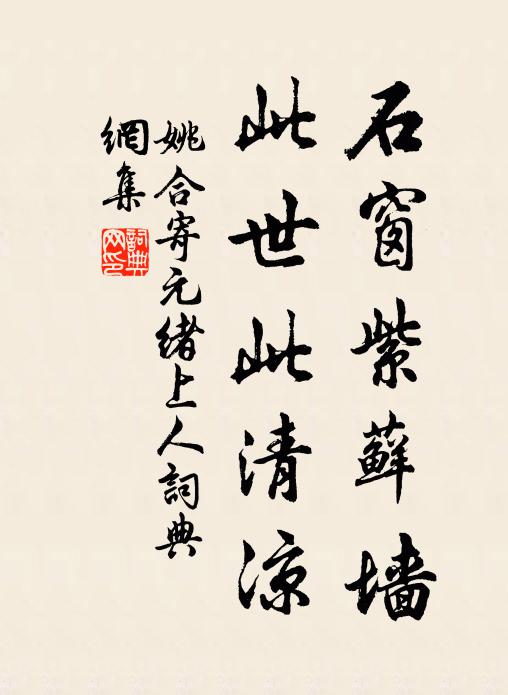 石窗紫蘚墙
此世此清涼
姚合寄元緒上人詞典
網集
詞典
网印